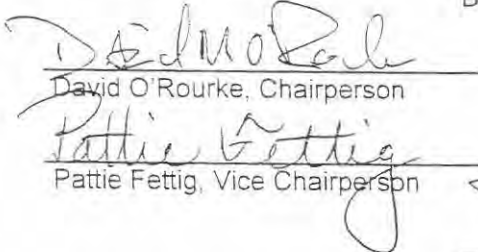 B
David M O'Rourke
David O'Rourke, Chairperson
Pattie Fettig
Pattie Fettig, Vice Chairperson